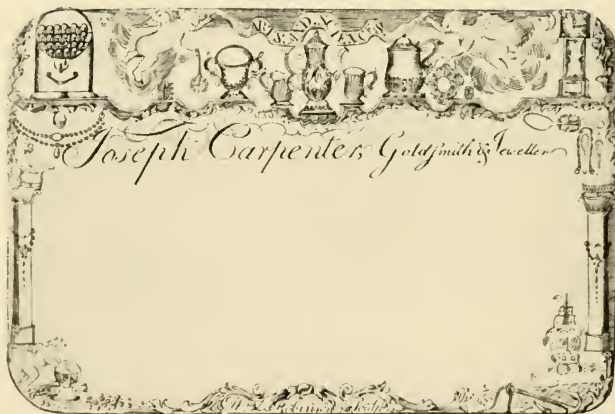 ARTS AND
Joseph Carpenter, Goldſmith & Jeweller